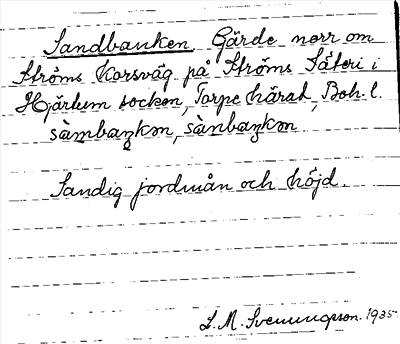 Sandbanken. Gärde norr om
Ströms Korsväg på Ströms Säteri i
Hjärtum socken, Torpe härad, Boh. l.
sàmbaŋkən, sànbaŋkən
Sandig jordmån och höjd.
L. M. Svenungsson. 1935.